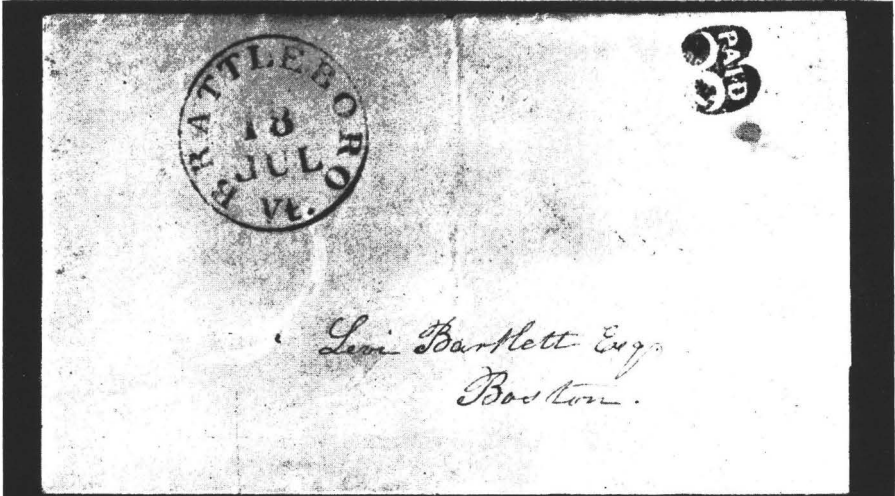 BRATTLEBORO
18
JUL
Vt.
PAID
3
Levi Bartlett Esq
Boston.